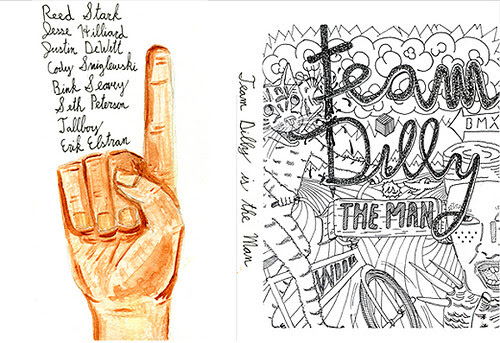 Reed Stark
Jesse Hilliard
Justin DeWitt
Cody Sniglewski
Bink Seavey
Seth Peterson
Tallboy
Erik Elstran
Team Dilly is the Man
Team
BMX
Dilly
is
THE MAN